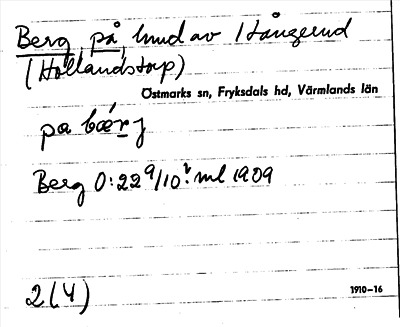 Berg, på hmd av Hångerud
(Hollandstorp)
Östmarks sn, Fryksdals hd, Värmlands län
pa bæ̀rj
Berg 0:22 9/10 ml 1909
2(4)
1910-16